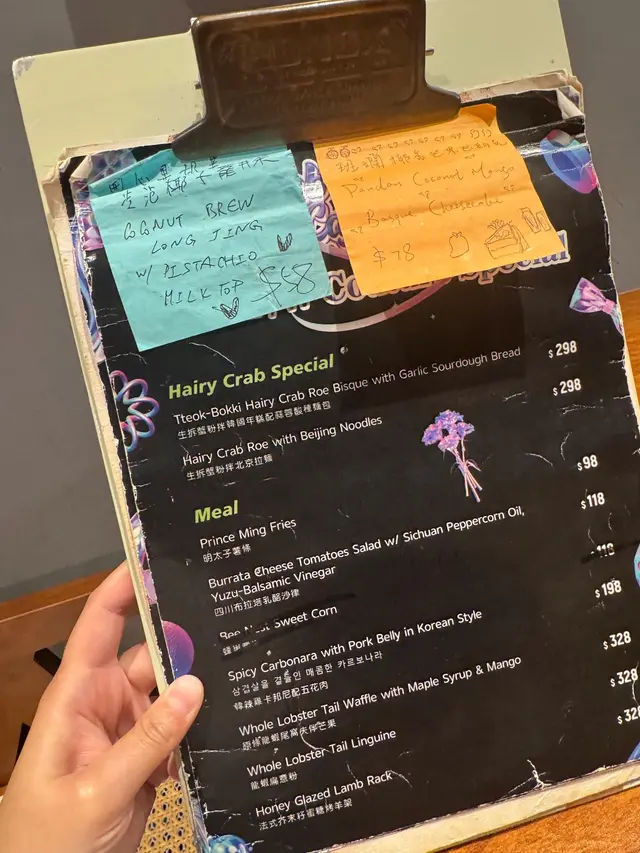 COCONUT BREW
LONG JING
W/ PISTACHIO
MILK TOP $58
班蘭椰
Pandan Coconut Mango
Basque Cheesecake
$78
Special
Hairy Crab Special
Tteok-Bokki Hairy Crab Roe Bisque with Garlic Sourdough Bread $298
生拆蟹粉拌韓國年糕配蒜蓉酸種麵包
Hairy Crab Roe with Beijing Noodles $298
生拆蟹粉拌北京拉麵
Meal
Prince Ming Fries $98
明太子薯條
Burrata Cheese Tomatoes Salad w/ Sichuan Peppercorn Oil, $118
Yuzu-Balsamic Vinegar
四川布拉塔乳酪沙律
Sweet Corn
Spicy Carbonara with Pork Belly in Korean Style $198
삼겹살을 곁들인 매콤한 카르보나라
韓辣雞卡邦尼配五花肉
Whole Lobster Tail Waffle with Maple Syrup & Mango $328
原條龍蝦尾窩夫伴芒果
Whole Lobster Tail Linguine $328
龍蝦扁意粉
Honey Glazed Lamb Rack
法式芥末籽蜜糖烤羊架